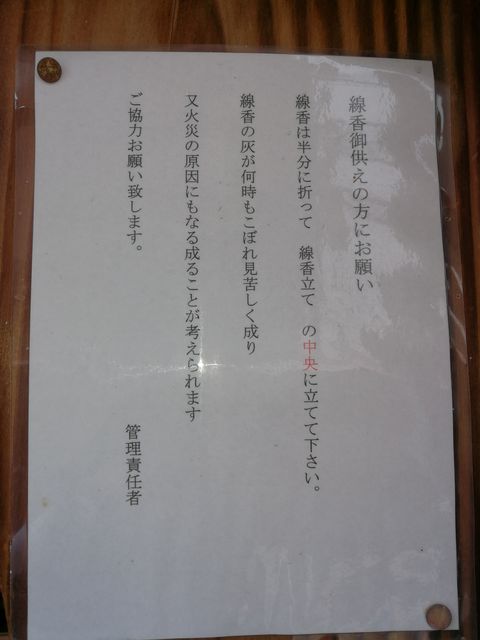 線香御供えの方にお願い
線香は半分に折って　線香立て　の中央に立てて下さい。
線香の灰が何時もこぼれ見苦しく成り
又火災の原因にもなる成ることが考えられます
ご協力お願い致します。
管理責任者